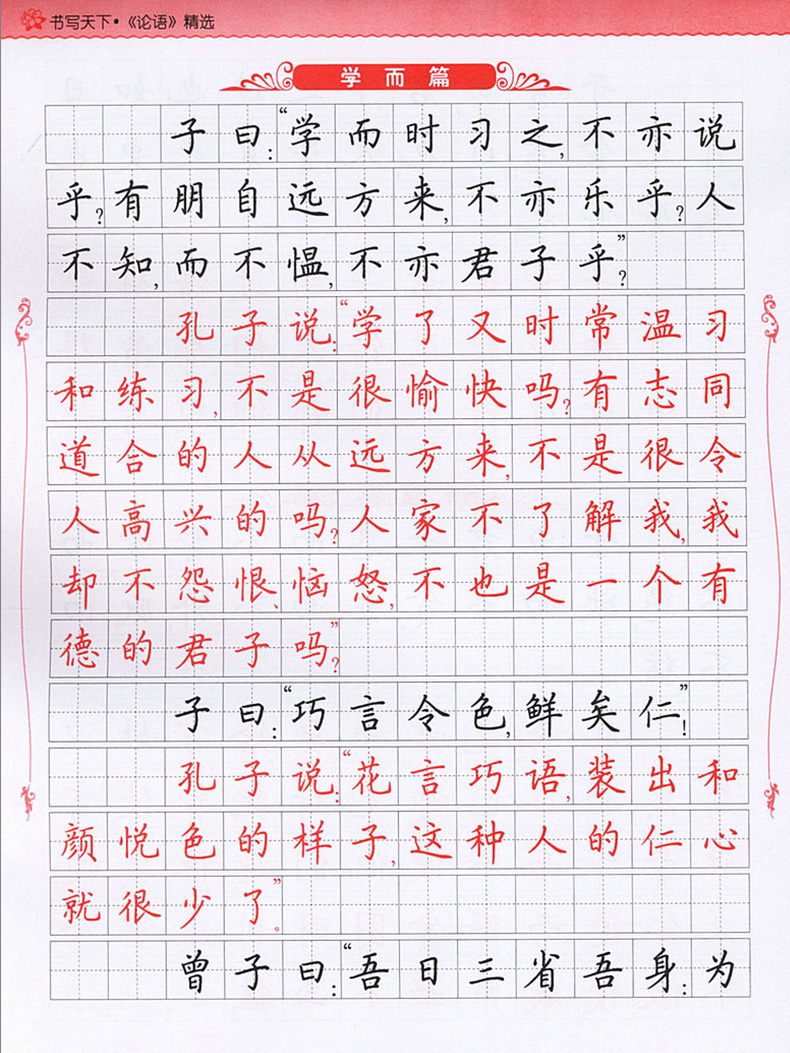 书写天下•《论语》精选
学而篇
子曰:“学而时习之,不亦说
乎?有朋自远方来,不亦乐乎?人
不知,而不愠,不亦君子乎”?
孔子说:“学了又时常温习
和练习,不是很愉快吗?有志同
道合的人从远方来,不是很令
人高兴的吗?人家不了解我,我
却不怨恨、恼怒,不也是一个有
德的君子吗”?
子曰:“巧言令色,鲜矣仁”!
孔子说:“花言巧语,装出和
颜悦色的样子,这种人的仁心
就很少了”。
曾子曰:“吾日三省吾身:为